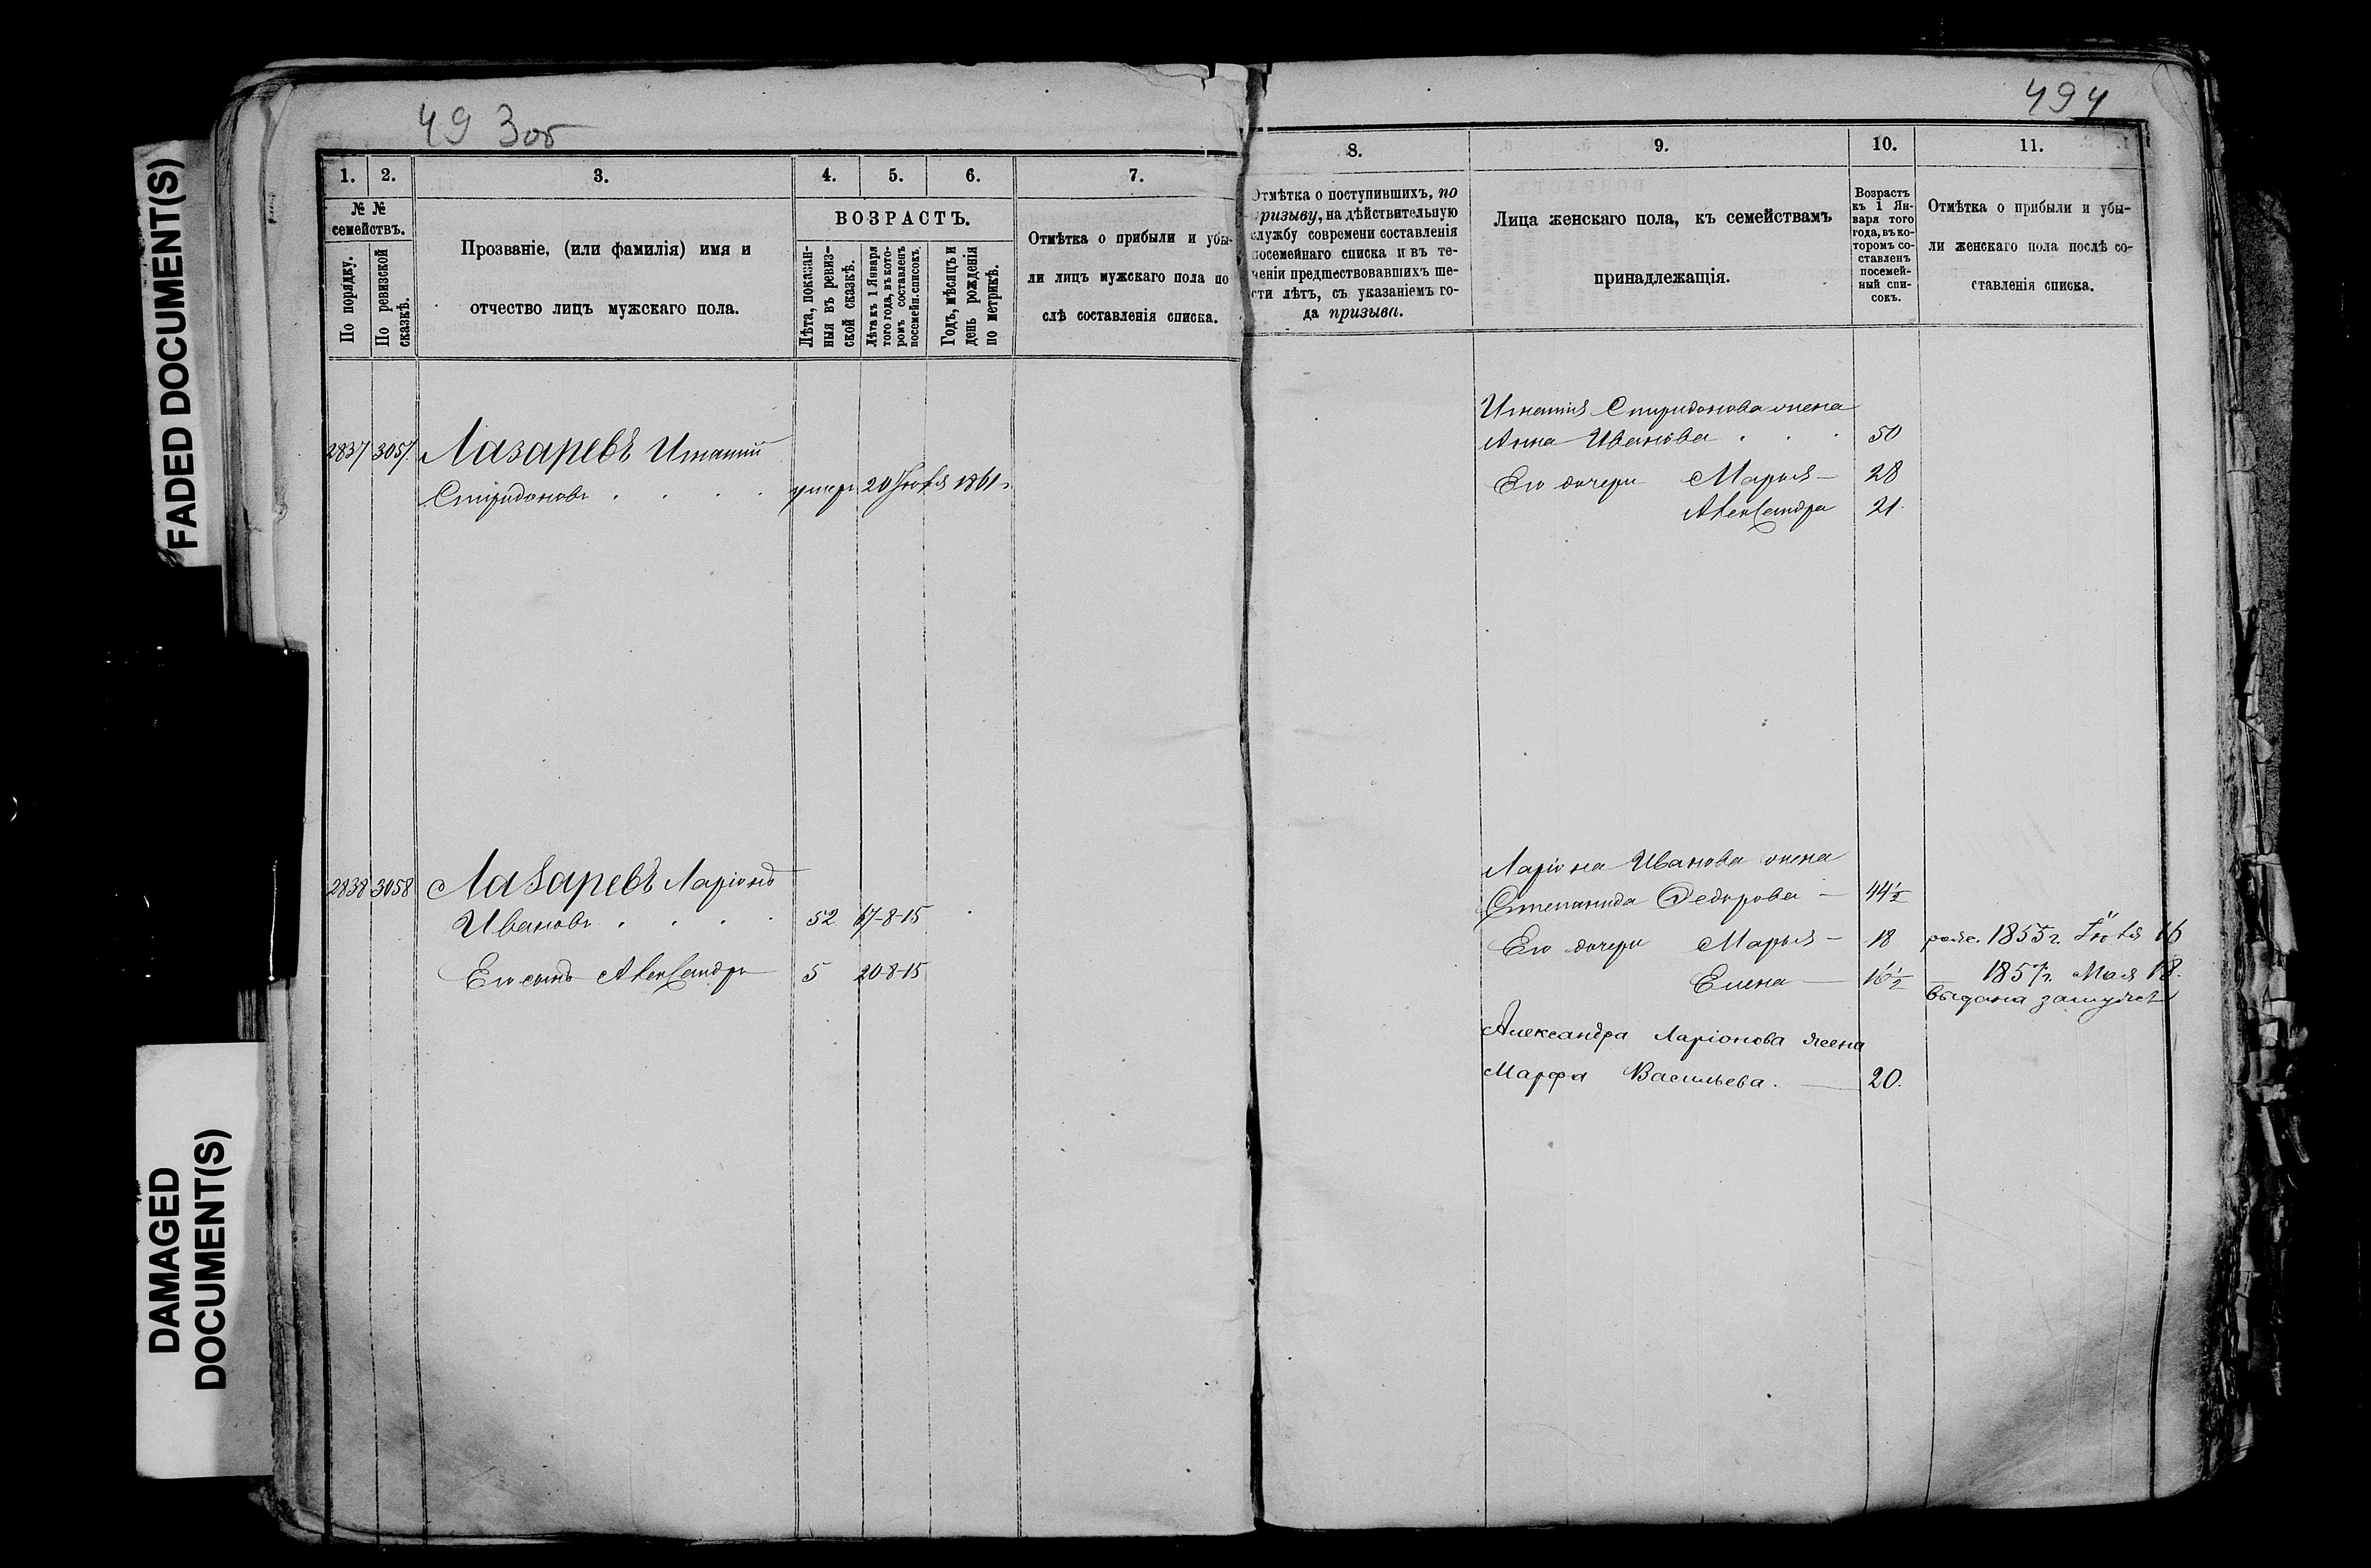 FADED DOCUMENT(S)
DAMAGED
DOCUMENT(S)
49 3об
1. 2. 3. 4. 5. 6. 7.
№ №
семействъ.
По порядку.
По ревизской
сказкѣ.
Прозваніе, (или фамилія) имя и
отчество лицъ мужскаго пола.
ВОЗРАСТЪ.
Лѣта, показан-
ныя въ ревиз-
ской сказкѣ.
Лѣта къ 1 Января
того года, въ кото-
ромъ составленъ
посемейн. списокъ.
Годъ, мѣсяцъ и
день рожденія
по метрикѣ.
Отмѣтка о прибыли и убы-
ли лицъ мужскаго пола по
слѣ составленія списка.
2837 3057 Лазаревъ Игнатій
Спиридоновъ . . . . умеръ 20 Іюля 1861 г
2838 3058 Лазаревъ Ларіонъ
Ивановъ . . . . 52 67-8-15
Его сынъ Александръ 5 20-8-15
494
8. 9. 10. 11.
Отмѣтка о поступившихъ, по
призыву, на дѣйствительную
службу современи составленія
посемейнаго списка и въ те-
ченіи предшествовавшихъ ше-
сти лѣтъ, съ указаніемъ го-
да призыва.
Лица женскаго пола, къ семействамъ
принадлежащія.
Возрастъ
къ 1 Ян-
варя того
года, въ ко-
торомъ со-
ставленъ
посемей-
ный спи-
сокъ.
Отмѣтка о прибыли и убы-
ли женскаго пола послѣ со-
ставленія списка.
Игнатія Спиридонова жена
Анна Иванова . . . 50
Его дочери Марья — 28
Александра 21
Ларіона Иванова жена
Степанида Федорова — 44½
Его дочери Марья — 18 рожд. 1855 г. Іюля 16
Елена — 16½ — 1857 г. Мая 18.
выдана замужъ
Александра Ларіонова жена
Марфа Васильева. — 20.